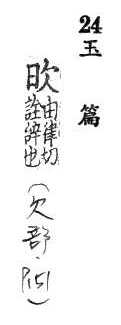 24
玉篇
欥由律切
詮辞也
(欠部・P151)